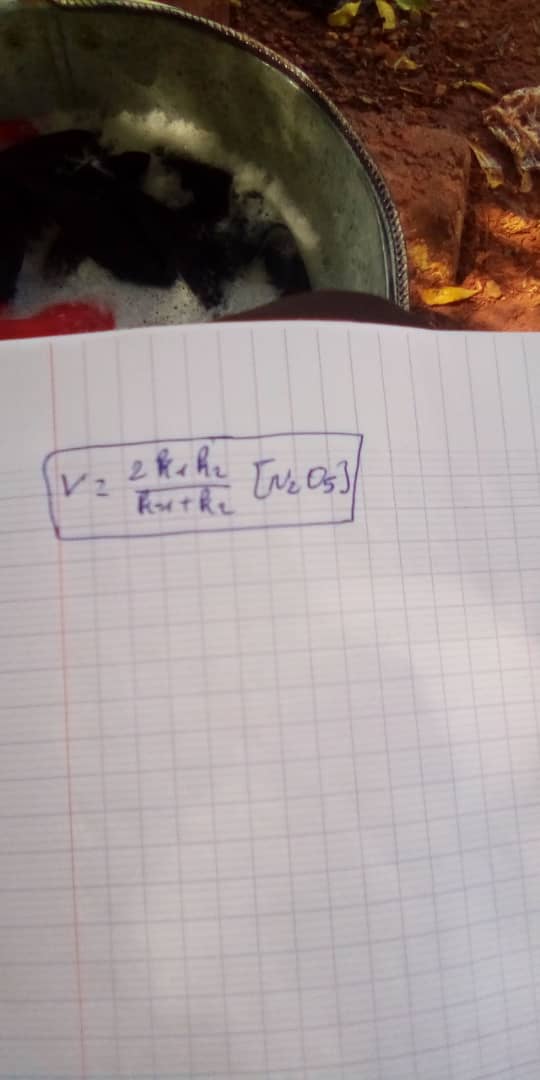 V = \frac{2 k_1 k_2}{k_{-1} + k_2} [N_2O_5]